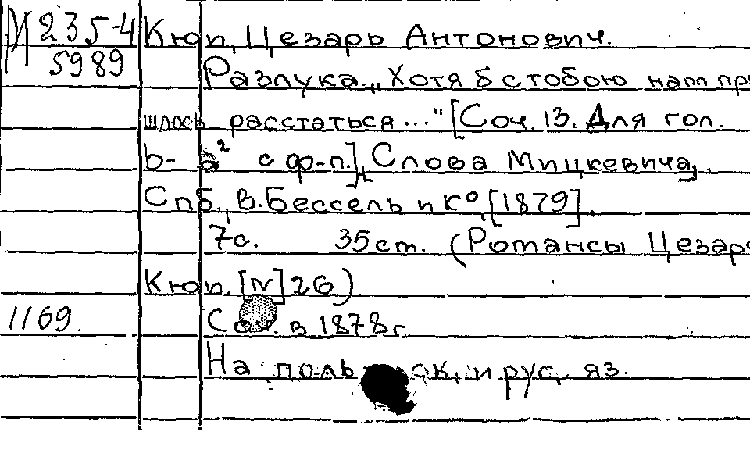 М 235-4 Кюи, Цезарь Антонович.
5989 Разлука. „Хотя б с тобою нам при
шлось расстаться..." [Соч. 13. Для гол.
b- a² с ф-п.], Слова Мицкевича,
Спб, В. Бессель и К⁰, [1879].
7с. 35 ст. (Романсы Цезаря
Кюи. [N] 26)
1169. в 1878 г.
На и рус. яз.